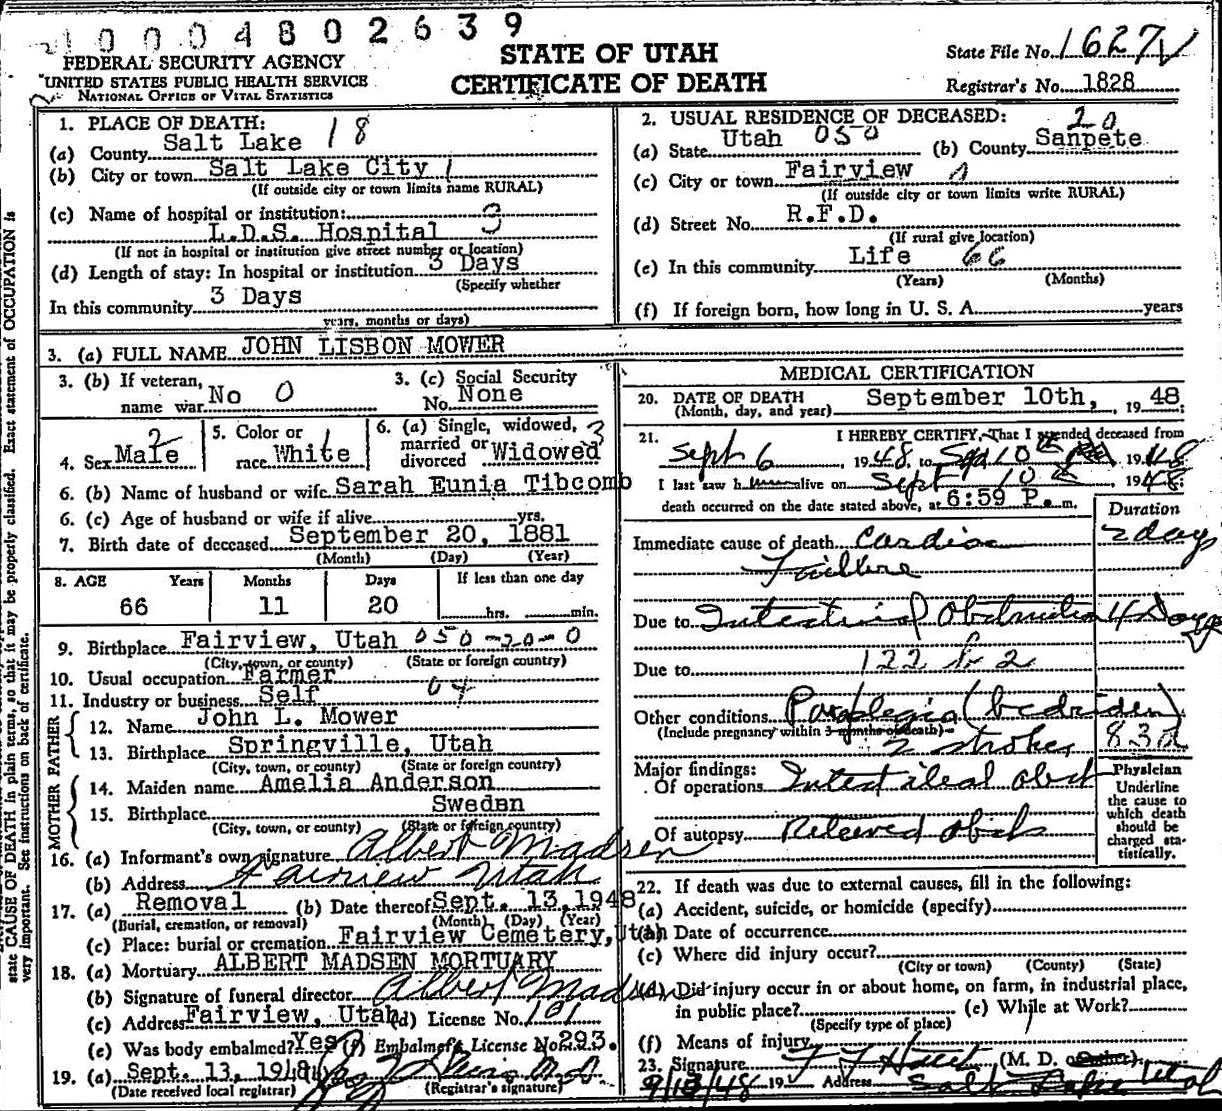 0004802639
STATE OF UTAH
CERTIFICATE OF DEATH
FEDERAL SECURITY AGENCY
UNITED STATES PUBLIC HEALTH SERVICE
NATIONAL OFFICE OF VITAL STATISTICS
State File No. 1627
Registrar's No. 1828
1. PLACE OF DEATH:
(a) County Salt Lake 18
(b) City or town Salt Lake City 1
(If outside city or town limits name RURAL)
(c) Name of hospital or institution:
L.D.S. Hospital 3
(If not in hospital or institution give street number or location)
(d) Length of stay: In hospital or institution 3 Days
(Specify whether
In this community 3 Days
years, months or days)
2. USUAL RESIDENCE OF DECEASED: 20
(a) State Utah 050 (b) County Sanpete
(c) City or town Fairview
(If outside city or town limits write RURAL)
(d) Street No. R.F.D.
(If rural give location)
(e) In this community Life 66
(Years) (Months)
(f) If foreign born, how long in U. S. A. years
3. (a) FULL NAME JOHN LISBON MOWER
3. (b) If veteran, name war No 0
3. (c) Social Security No. None
4. Sex Male 2
5. Color or race White 1
6. (a) Single, widowed, married or divorced Widowed 3
6. (b) Name of husband or wife Sarah Eunia Tibcomb
6. (c) Age of husband or wife if alive yrs.
7. Birth date of deceased September 20, 1881
(Month) (Day) (Year)
8. AGE Years Months Days If less than one day
66 11 20 hrs. min.
9. Birthplace Fairview, Utah 050-20-0
(City, town, or county) (State or foreign country)
10. Usual occupation Farmer
11. Industry or business Self
FATHER
12. Name John L. Mower
13. Birthplace Springville, Utah
(City, town, or county) (State or foreign country)
MOTHER
14. Maiden name Amelia Anderson
15. Birthplace Sweden
(City, town, or county) (State or foreign country)
16. (a) Informant's own signature Albert Madsen
(b) Address Fairview Utah
17. (a) Removal (b) Date thereof Sept. 13, 1948
(Burial, cremation, or removal) (Month) (Day) (Year)
(c) Place: burial or cremation Fairview Cemetery, Utah
18. (a) Mortuary ALBERT MADSEN MORTUARY
(b) Signature of funeral director Albert Madsen
(c) Address Fairview, Utah (d) License No. 101
(e) Was body embalmed? Yes (f) Embalmer's License No. 293.
19. (a) Sept. 13, 1948
(Date received local registrar) (Registrar's signature)
MEDICAL CERTIFICATION
20. DATE OF DEATH September 10th, 1948
(Month, day, and year)
21. I HEREBY CERTIFY, That I attended deceased from
Sept 6, 1948, to Sept 10th 1948
I last saw h alive on Sept 10 1948
death occurred on the date stated above, at 6:59 P. m.
Duration
Immediate cause of death Cardiac 2 days
Failure
Due to Intestinal Obstruction 4 Days
Due to 122 b 2
Other conditions Paraplegia (bedriden)
(Include pregnancy within 3 months of death)
2 strokes 83d
Major findings:
Of operations Intestileal obst
Of autopsy Releived Obst
Physician
Underline
the cause to
which death
should be
charged sta-
tistically.
22. If death was due to external causes, fill in the following:
(a) Accident, suicide, or homicide (specify)
(b) Date of occurrence
(c) Where did injury occur?
(City or town) (County) (State)
(d) Did injury occur in or about home, on farm, in industrial place,
in public place? (e) While at Work?
(Specify type of place)
(f) Means of injury
23. Signature (M. D. or other)
9/13/48 19 Address Salt Lake Utah
state CAUSE OF DEATH in plain terms, so that it may be properly classified. Exact statement of OCCUPATION is
very important. See instructions on back of certificate.